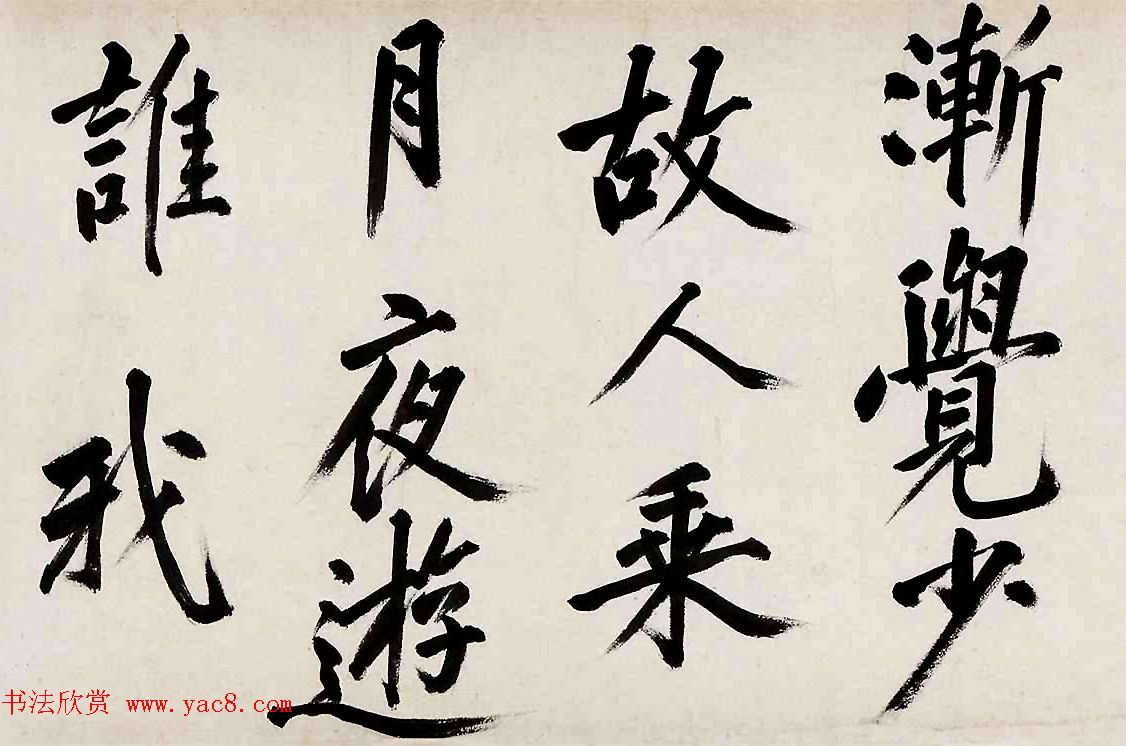 漸覺少
故人乗
月夜遊
誰我
书法欣赏 www.yac8.com